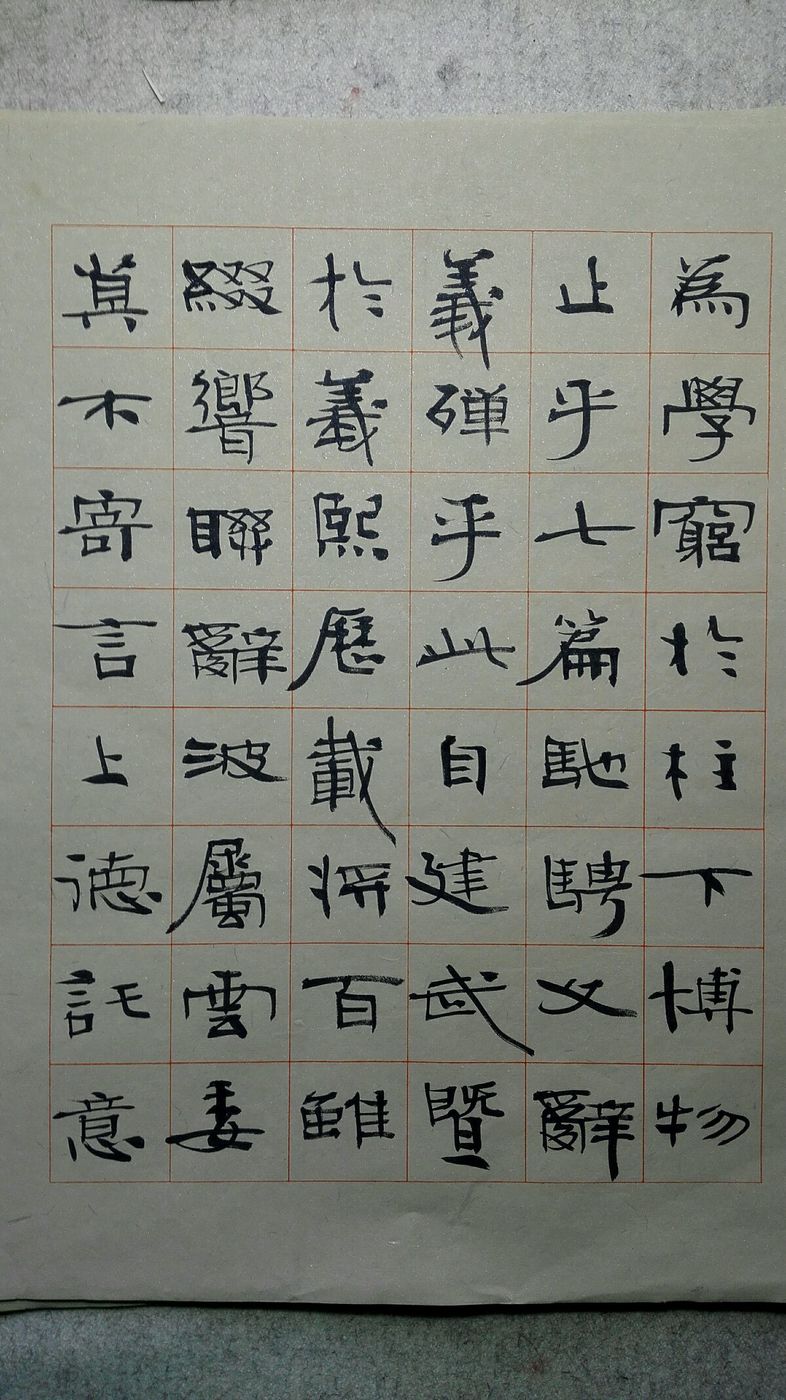 為學窮於柱下博物
止乎七篇馳騁文辭
義殫乎此自建武暨
於義熙歷載將百雖
綴響聯辭波屬雲委
莫不寄言上德託意